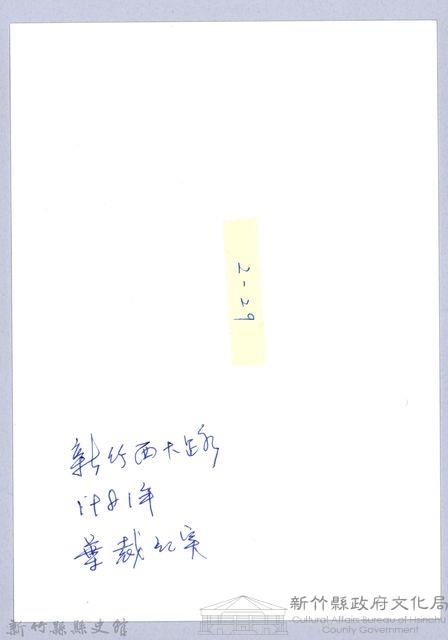 2-29
新竹西大路
1981年
葉裁紀实
新竹縣縣史館
新竹縣政府文化局
Cultural Affairs Bureau of Hsinchu
County Government